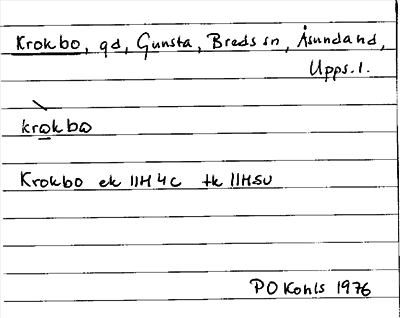 Krokbo, gd, Gunsta, Breds sn, Åsundahd,
Upps. l.
krokbo
Krokbo ek 11H4c tk 11HSV
PO Kohls 1976